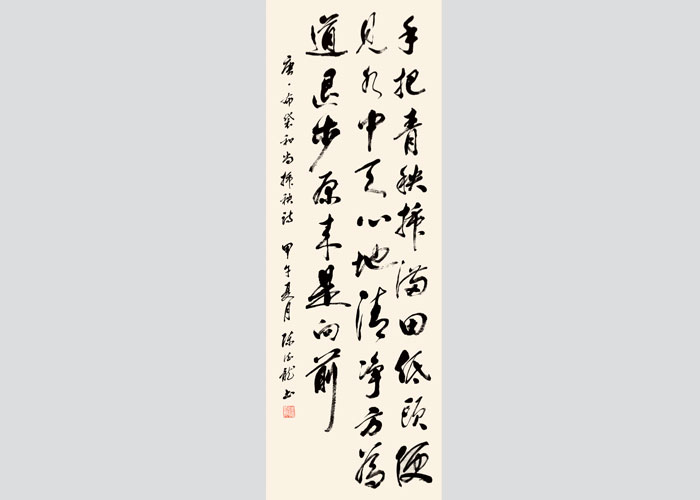 手把青秧插满田低头便
见水中天心地清净方为
道退步原来是向前
唐·布袋和尚插秧诗 甲午夏月 陈德龙书